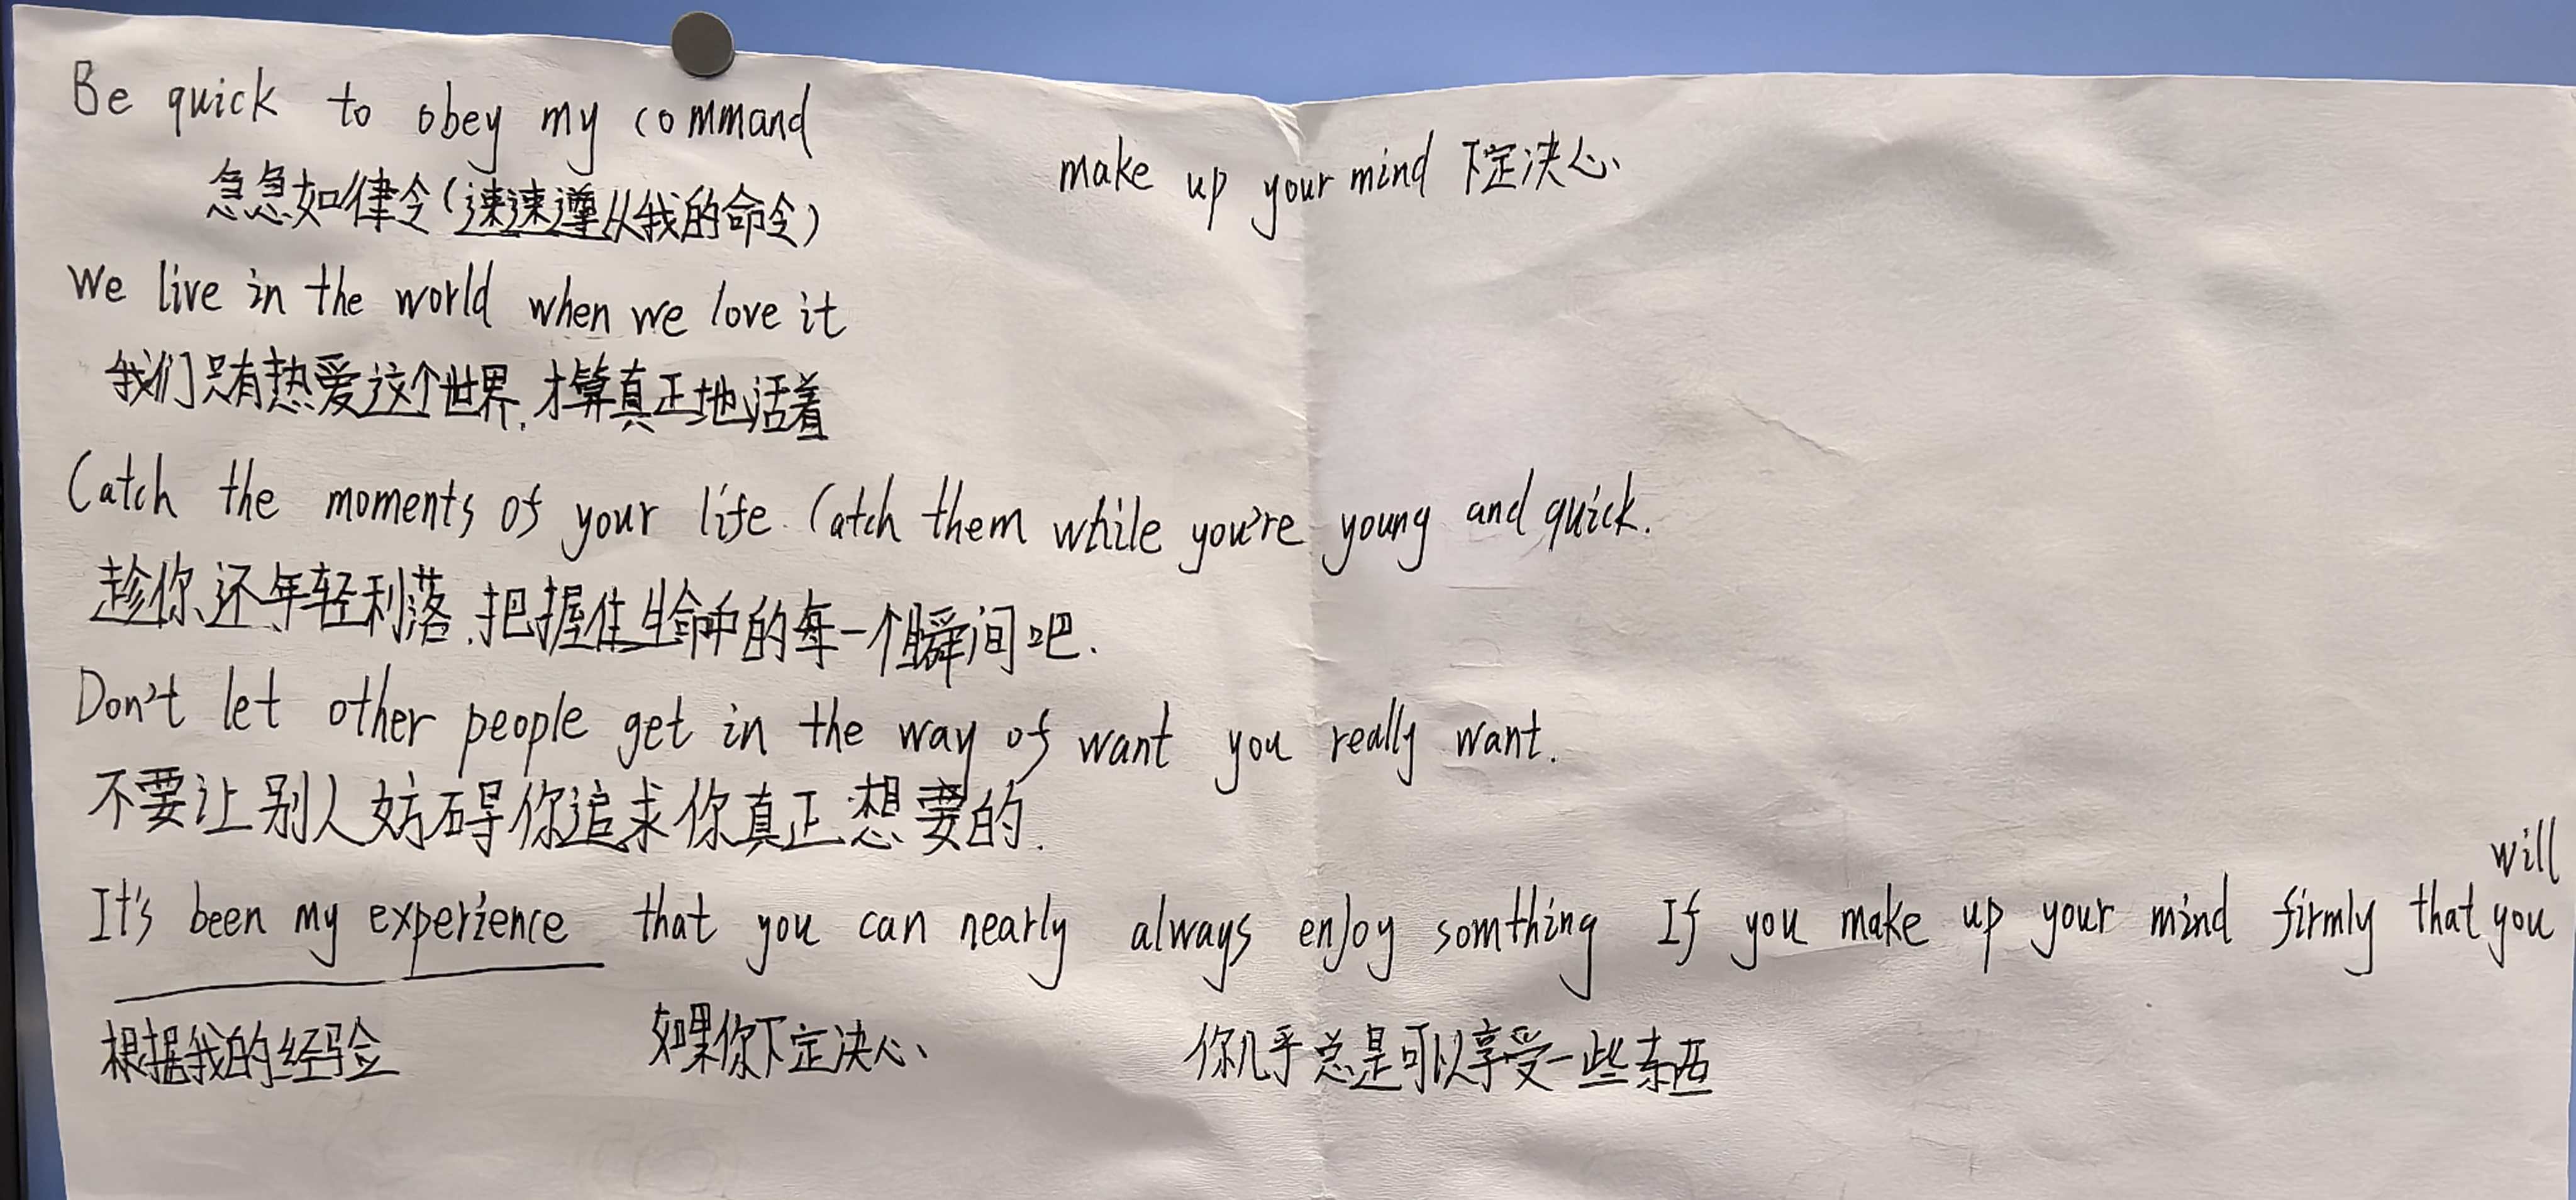 Be quick to obey my command
急急如律令(速速遵从我的命令)
make up your mind 下定决心、
We live in the world when we love it
我们只有热爱这个世界,才算真正地活着
Catch the moments of your life. Catch them while you're young and quick.
趁你还年轻利落,把握住生命中的每一个瞬间吧.
Don't let other people get in the way of want you really want.
不要让别人妨碍你追求你真正想要的.
will
It's been my experience that you can nearly always enjoy somthing If you make up your mind firmly that you
根据我的经验 如果你下定决心、 你几乎总是可以享受一些东西